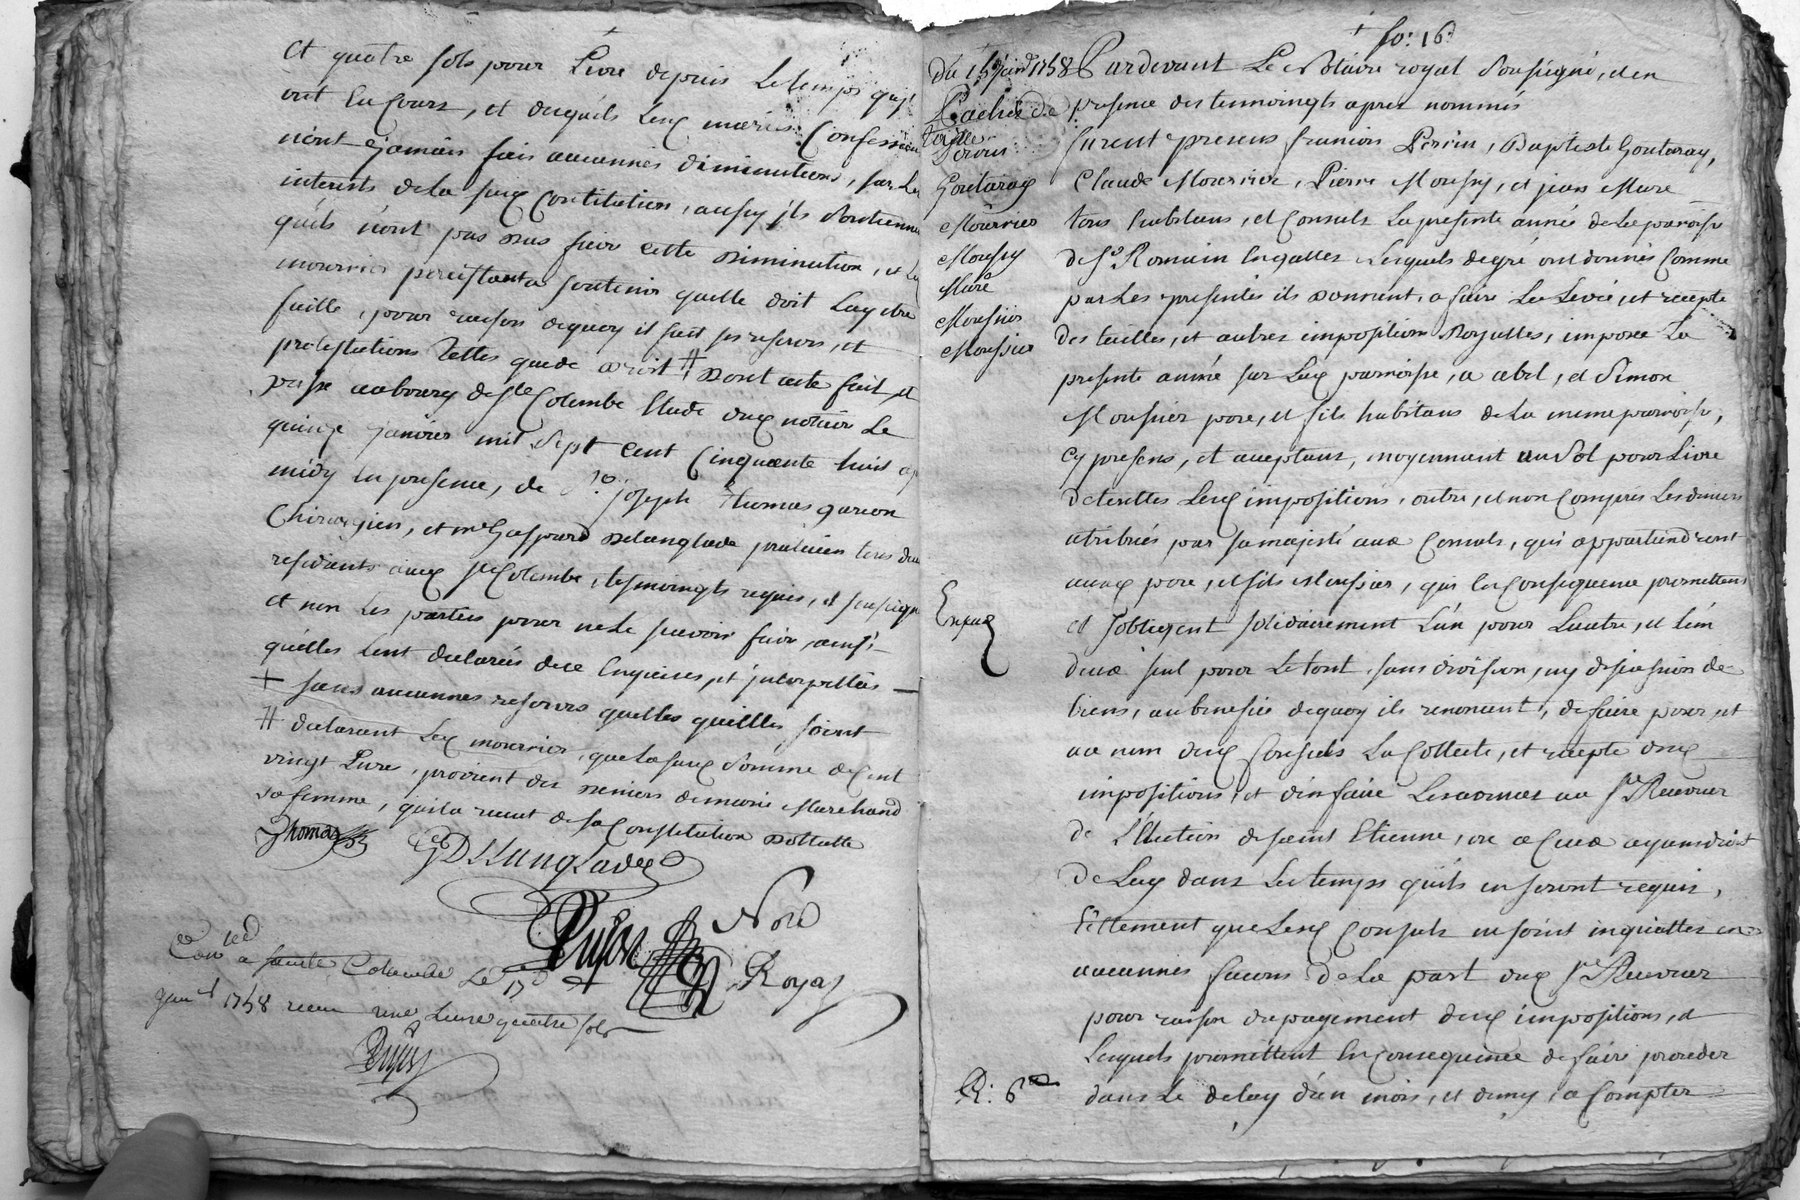 Et quatre sols pour Livre depuis Le temps qu'il
ont En Cours, et desquels Lesd mariés Confessent
n'ont jamais fais aucunnes diminutions, sur Les
interests de La susd Constitution, aussy ils soutiennent
quils n'ont pas deus faire cette diminution, et Led
mourrier persistant a soutenir quelle doit Luy etre
faitte, pour raison dequoy il fait ses reserves, et
protestations telles que de droit # dont acte fait et
passé au bourg de Ste Colombe Etude dud notaire Le
quinze janvier mil sept cent Cinquante huit ap
midy En presence, de Sr joseph thomas garcon
Chirurgien, et me Gaspard Delanglade praticien tous deux
residants aud Ste Colombe, tesmoingts requis, et soussignés
et non Les parties pour ne Le scavoir faire ainsi
qu'elles l'ont declarées de ce Enquises, et interpellées
+ sans aucunnes reserves quelles quelles soient
# declarant Led mourrier, que La susd Somme de Cent
vingt Livre, provient des deniers de marie Marchand
sa femme, quila receut de sa Constitution dottalle
Thomas
GDLLanglade
Dupré Nore
Royal
Con lé a sainte Colombe Le 17
janv 1758 receu une Livre quatre sols
Dupré
fo: 16
Du 15 janr 1758
de
taille
Perrin
Goutaray
Mourrier
Moussy
Mure
Mousnier
Mousnier
Expéd
R: 6
Pardevant Le Notaire royal Soussigné, et en
presence des temmoingts apres nommés
furent presens francois Perrin, Baptiste Goutaray,
Claude Mourrier, Pierre Moussy, et jean Mure
tous habitans, et Consuls La presente année de La paroisse
de St Romain Lesquels de gré ont donnés Comme
par Les presentes ils donnent, a faire La Levée, et recepte
des tailles, et autres impositions Royalles, imposée La
presente année sur Lad paroisse, a abel, et Simon
Mousnier pere, et fils habitans de La meme paroisse,
cy presens, et aceptans, moyennant un Sol pour Livre
detouttes Lesd impositions, outre, et non Compris Les deniers
atribués par sa majesté aux Consuls, qui appartiendront
auxd pere, et fils Mousnier, qui En Consequence promettent
et s'obligent solidairement L'un pour L'autre, et L'un
deux seul pour Le tout, sans division, ny discusion de
biens, au benefice dequoy ils renoncent, de faire pour et
au nom desd Consuls La Collecte, et recepte desd
impositions, et d'en faire Les acomptes au Sr Receveur
de L'Election de saint Etienne, ou a Ceux ayans droit
de Luy dans Les temps qu'ils en seront requis,
tellement que Lesd Consuls ne soint inquiettés en
aucunnes facons de La part dud Sr Receveur
pour raison du payement desd impositions, et
Lesquels promettent En Consequence de faire proceder
dans Le delay d'un mois, et demy, a Compter